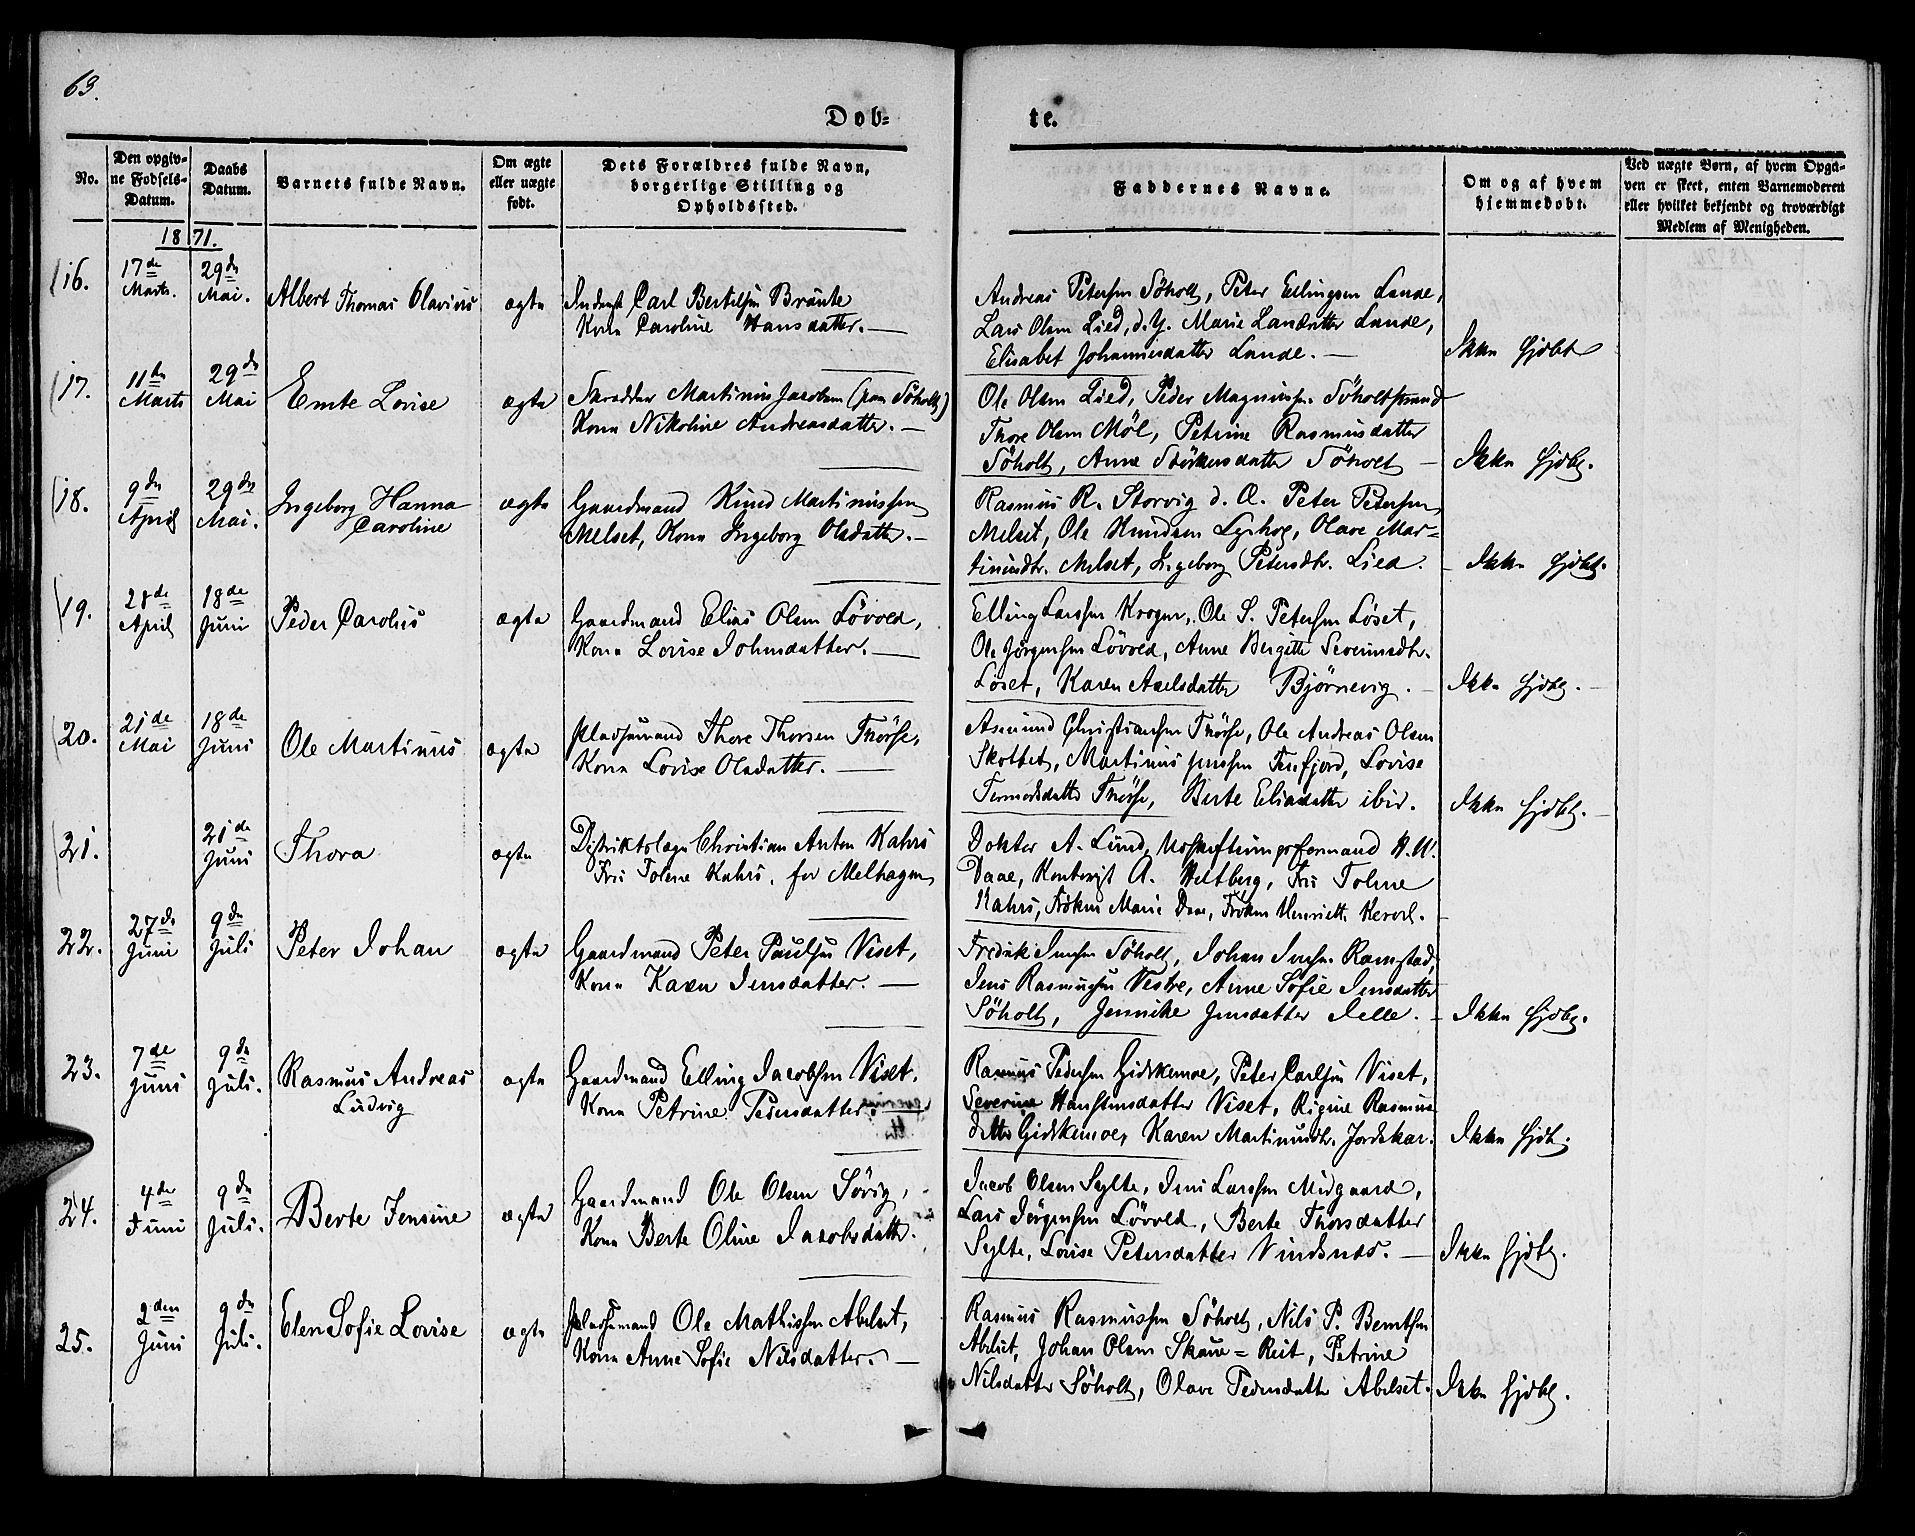 63.
Döb=
te.
No.
Den opgiv-
ne Fødsels-
Datum.
Daabs
Datum.
Barnets fulde Navn.
Om ægte
eller uægte
født.
Dets Forældres fulde Navn,
borgerlige Stilling og
Opholdssted.
Faddernes Navne.
Om og af hvem
hjemmedøbt.
Ved uægte Børn, af hvem Opga-
ven er skeet, enten Barnemoderen
eller hvilket bekjendt og troværdigt
Medlem af Menigheden.
1871.
16.
17de
Marts.
29de
Mai.
Albert Thomas Olavius
ægte
Inderst Carl Bertilsen Braute
Kone Caroline Hansdatter.
Andreas Petersen Søholt, Peter Ellingsen Lande,
Lars Olsen Lied, d. Y. Marie Larsdatter Lande,
Elisabet Johannesdatter Lande.
Ikke hjdbt
17.
11te
Marts
29de
Mai
Emte Lovise
ægte
Skrædder Martinus Jacobsen (paa Søholt)
Kone Nikoline Andreasdatter.
Ole Olsen Lied, Peder Magnussen Søholtstrand
Thore Olsen Möl, Petrine Rasmusdatter
Søholt, Anne Störkersdatter Søholt
Ikke hjdbt.
18.
9de
April
29de
Mai.
Ingeborg Hanna
Caroline
ægte
Gaardmand Knud Martinussen
Melset, Kone Ingeborg Olsdatter.
Rasmus R. Storvig d. Æ. Peter Petersen
Melset, Ole Knudsen Lyshog, Olave Mar=
tinusdtr. Melset, Ingeborg Petersdtr. Lied.
Ikke hjdbt.
19.
28de
April
18de
Juni
Peder Carolus
ægte
Gaardmand Elias Olsen Lövold,
Kone Lovise Johnsdatter.
Elling Larssen Krogen, Ole S. Petersen Löset,
Ole Jørgensen Lövold, Anne Bergitte Severinsdtr.
Löset, Karen Axelsdatter Bjørnevig.
Ikke hjdbt.
20.
21de
Mai
18de
Juni
Ole Martinus
ægte
Pladsemand Thore Thorsen Fnörse,
Kone Lovise Olsdatter.
Asmund Christiansen Fnörse, Ole Andreas Olsen
Skottet, Martinus Jenssen Tenfjord, Lovise
Fnörse, Berte Eliasdatter ibid.
Ikke hjdbt.
21.
21de
Juni
Thora
ægte
Distriktslæge Christian Anton Kahrs
Fru Toline Kahrs, før Melhagen
Dokter A. Lund, Uoskiftningsformand H. U.
Daae, Kontorist A. Heltberg, Fru Toline
Kahrs, Frøken Marie Daae, Frøken Henriette
22.
27de
Juni
9de
Juli
Peter Johan
ægte
Gaardmand Peter Paulsen Viset,
Kone Karen Jensdatter.
Fredrik Jensen Søholt, Johan Iversen Ramstad,
Jens Rasmussen Vestre, Anne Sofie Jensdatter
Søholt, Jennike Jensdatter Aelle.
Ikke hjdbt.
23.
7de
Juni
9de
Juli.
Rasmus Andreas
Ludvig
ægte
Gaardmand Elling Jacobsen Viset.
Kone Petrine Pedersdatter.
Rasmus Pedersen Gidskemoe, Peter Carlsen Viset,
Severine Hanstensdatter Viset, Rigine Rasmus
datter Gidskemoe, Karen Martinusdtr. Jordskar.
Ikke hjdbt.
24.
4de
Juni
9de
Juli.
Berte Jensine
ægte
Gaardmand Ole Olsen Sövig,
Kone Berte Oline Jacobsdatter.
Jacob Olsen Sylte, Jens Larssen Midgaard,
Lars Jörgensen Lövold, Berte Thorsdatter
Sylte, Lovise Petersdatter Vindsnæs.
Ikke hjdbt.
25.
2den
Juni
9de
Juli.
Elen Sofie Lovise
ægte
Pladsemand Ole Mathissen Abelset,
Kone Anne Sofie Nilsdatter.
Rasmus Rasmussen Söholt, Nils P. Berntsen
Abelset, Johan Olsen Skaue=Reit, Petrine
Nilsdatter Söholt, Olave Pedersdatter Abelset.
Ikke hjdbt.